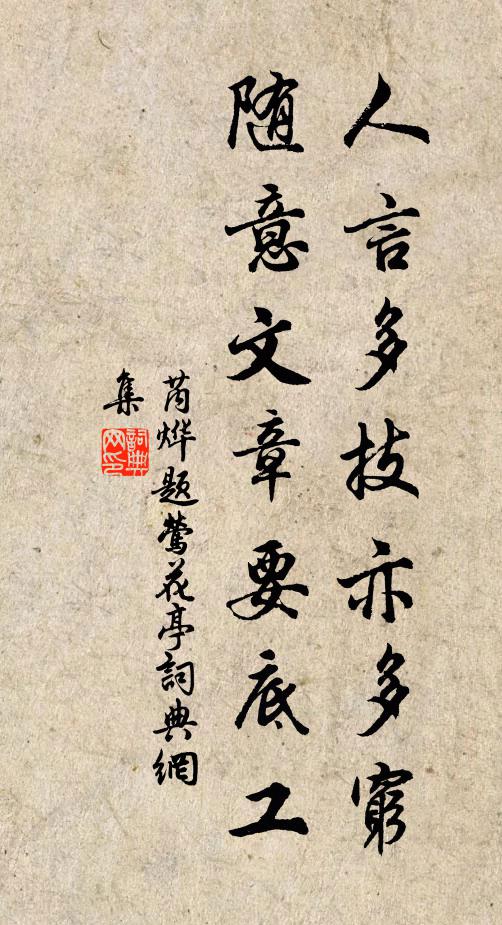 人言多技亦多窮
随意文章要底工
芮烨题鶯花亭詞典網
集
詞典网印